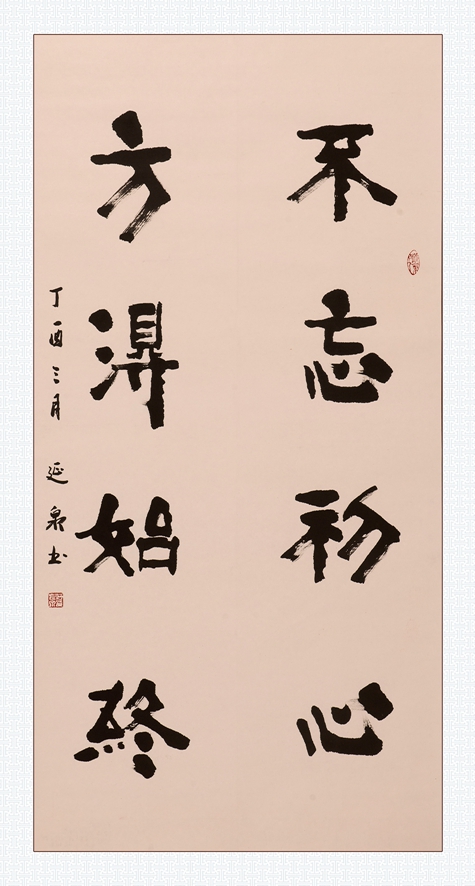 不忘初心
方得始终
丁酉三月 延泉书